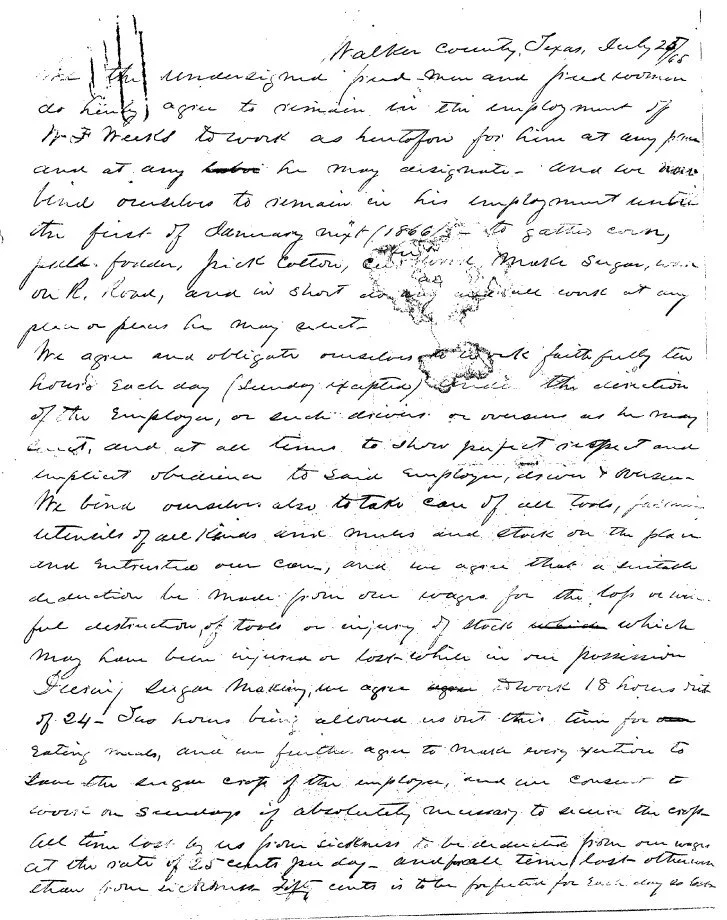 Walker County, Texas, July 25/65
We the undersigned freed-men and freed women
do herby agree to remain in the employment of
W F Weeks to work as heretofore for him at any place
and at any he may designate - and we now
bind ourselves to remain in his employment until
the first of January next (1866) - to gather corn,
pull fodder, pick Cotton, make sugar, work
on R. Road, and in short all work at any
place or places he may select -
We agree and obligate ourselves to work faithfully ten
hours Each day (Sunday excepted) under the direction
of the Employer, or such drivers or overseers as he may
, and at all times to show perfect respect and
implicit obedience to said Employer, driver & overseer -
We bind ourselves also to take care of all tools, farming
utensils of all Kinds and mules and stock on the place
and Entrusted our care, and we agree that a suitable
deduction be made from our wages for the loss or wil-
ful destruction, of tools or injury of stock which
may have been injured or lost while in our possession
During sugar making, we agree to work 18 hours out
of 24 - Two hours being allowed us out this time for
Eating meals, and we further agree to make every exertion to
Save the sugar crop of the employer, and we consent to
work on Sundays if absolutely necessary to secure the crop -
All time lost by us from sickness to be deducted from our wages
at the rate of 25 cents per day - and for all time lost otherwise
than from sickness fifty cents is to be forfeited for Each day so lost